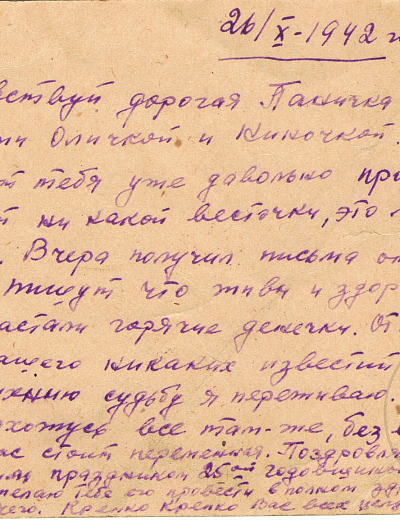 26/X-1942 г
вствуй дорогая Паничка
ми Оличкой и Ниночкой.
т тебя уже давольно про
й ни какой весточки, это
. Вчера получил письма о
пишут что живы и здор
астали горячие денечки. От
ащего никаких известий
судьбу я переживаю.
хожусь все там-же, без
ас стоит переменная. Поздравля
праздником 25ой годовщиной
желаю тебе его провести в полном здр
Крепко Крепко Вас всех целу